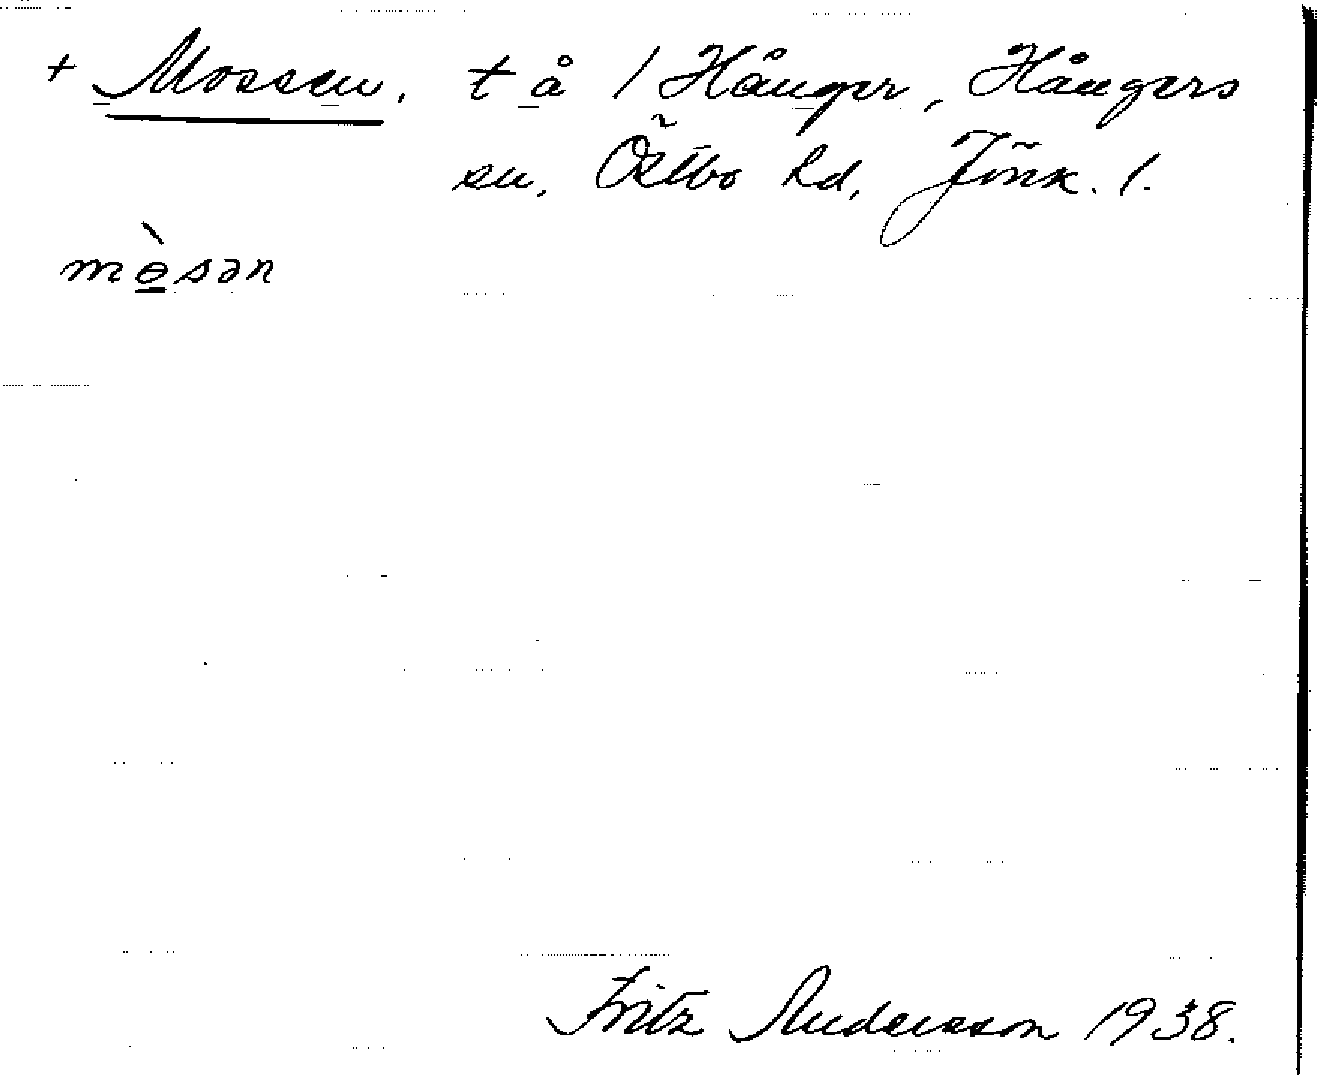 + Mossen. t å 1 Hånger, Hångers
sn, Östbo hd, Jönk. l.
mɵ̀sən
Fritz Andersson 1938.